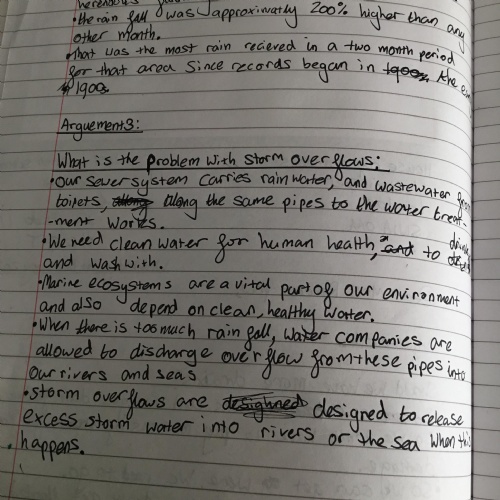 • the rain fall was approximatly 200% higher than any
other month.
• That was the most rain recieved in a two month period
for that area since records began in the
1900s
Arguement 3:
What is the problem with storm overflows:
• Our sewer system carries rain water, and wastewater from
toilets, along the same pipes to the water treat-
-ment works.
• We need clean water for human health, to drink
and wash with.
• Marine ecosystems are a vital part of our environment
and also depend on clean, healthy water.
• When there is too much rain fall, water companies are
allowed to discharge overflow from these pipes into
our rivers and seas
• storm overflows are designed to release
excess storm water into rivers or the sea when this
happens.